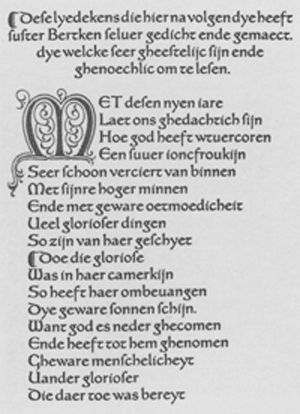 ¶Dese lyedekens die hier na volgen dye heeft
suster Bertken seluer gedicht ende gemaect.
dye welcke seer gheestelijc sijn ende
ghenoechlic om te lesen.
MET desen nyen iare
Laet ons ghedachtich sijn
Hoe god heeft wtuercoren
Een suuer ioncfroukijn
Seer schoon verciert van binnen
Met sijnre hoger minnen
Ende met geware oetmoedicheit
Ueel glorioser dingen
So zijn van haer geschyet
¶Doe die gloriose
Was in haer camerkijn
So heeft haer ombeuangen
Dye geware sonnen schijn.
Want god es neder ghecomen
Ende heeft tot hem ghenomen
Gheware menschelicheyt
Uander glorioser
Die daer toe was bereyt